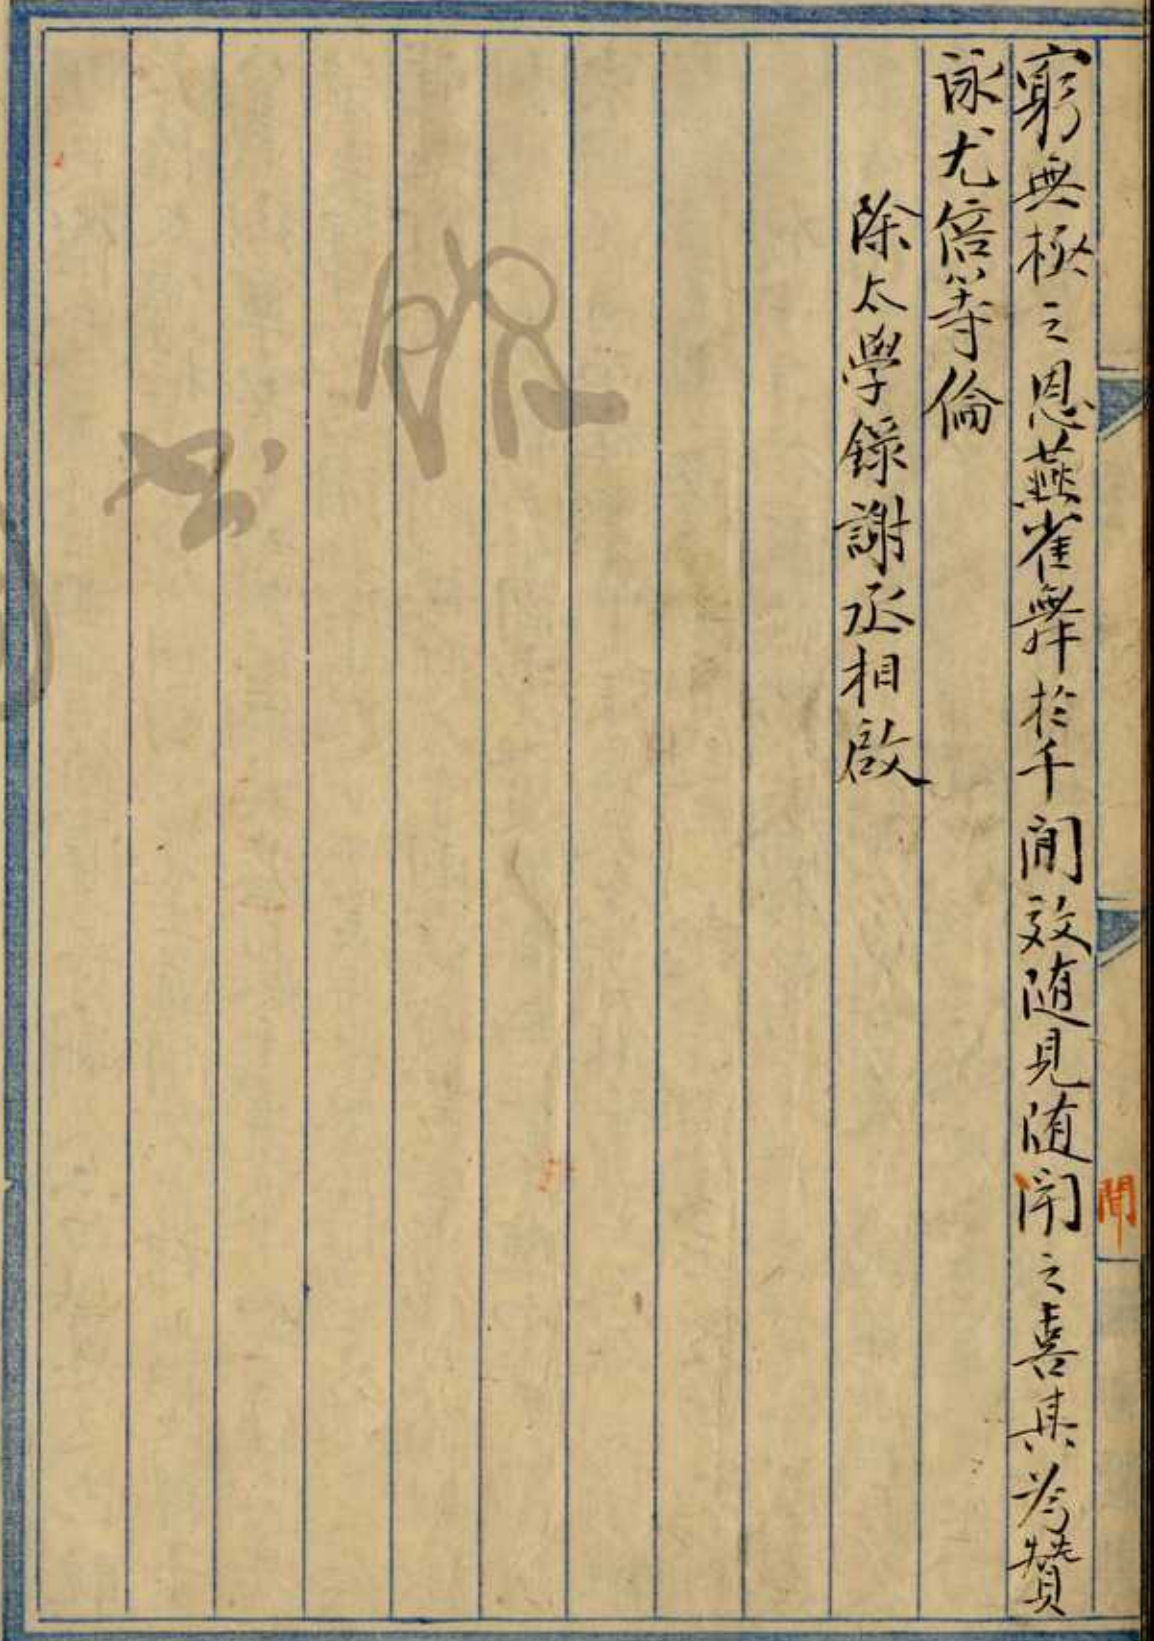 窮無極之恩燕雀舞於千閒效随見随閇之喜其爲贊
詠尤倍等倫
除太學錄謝丞相啟
聞